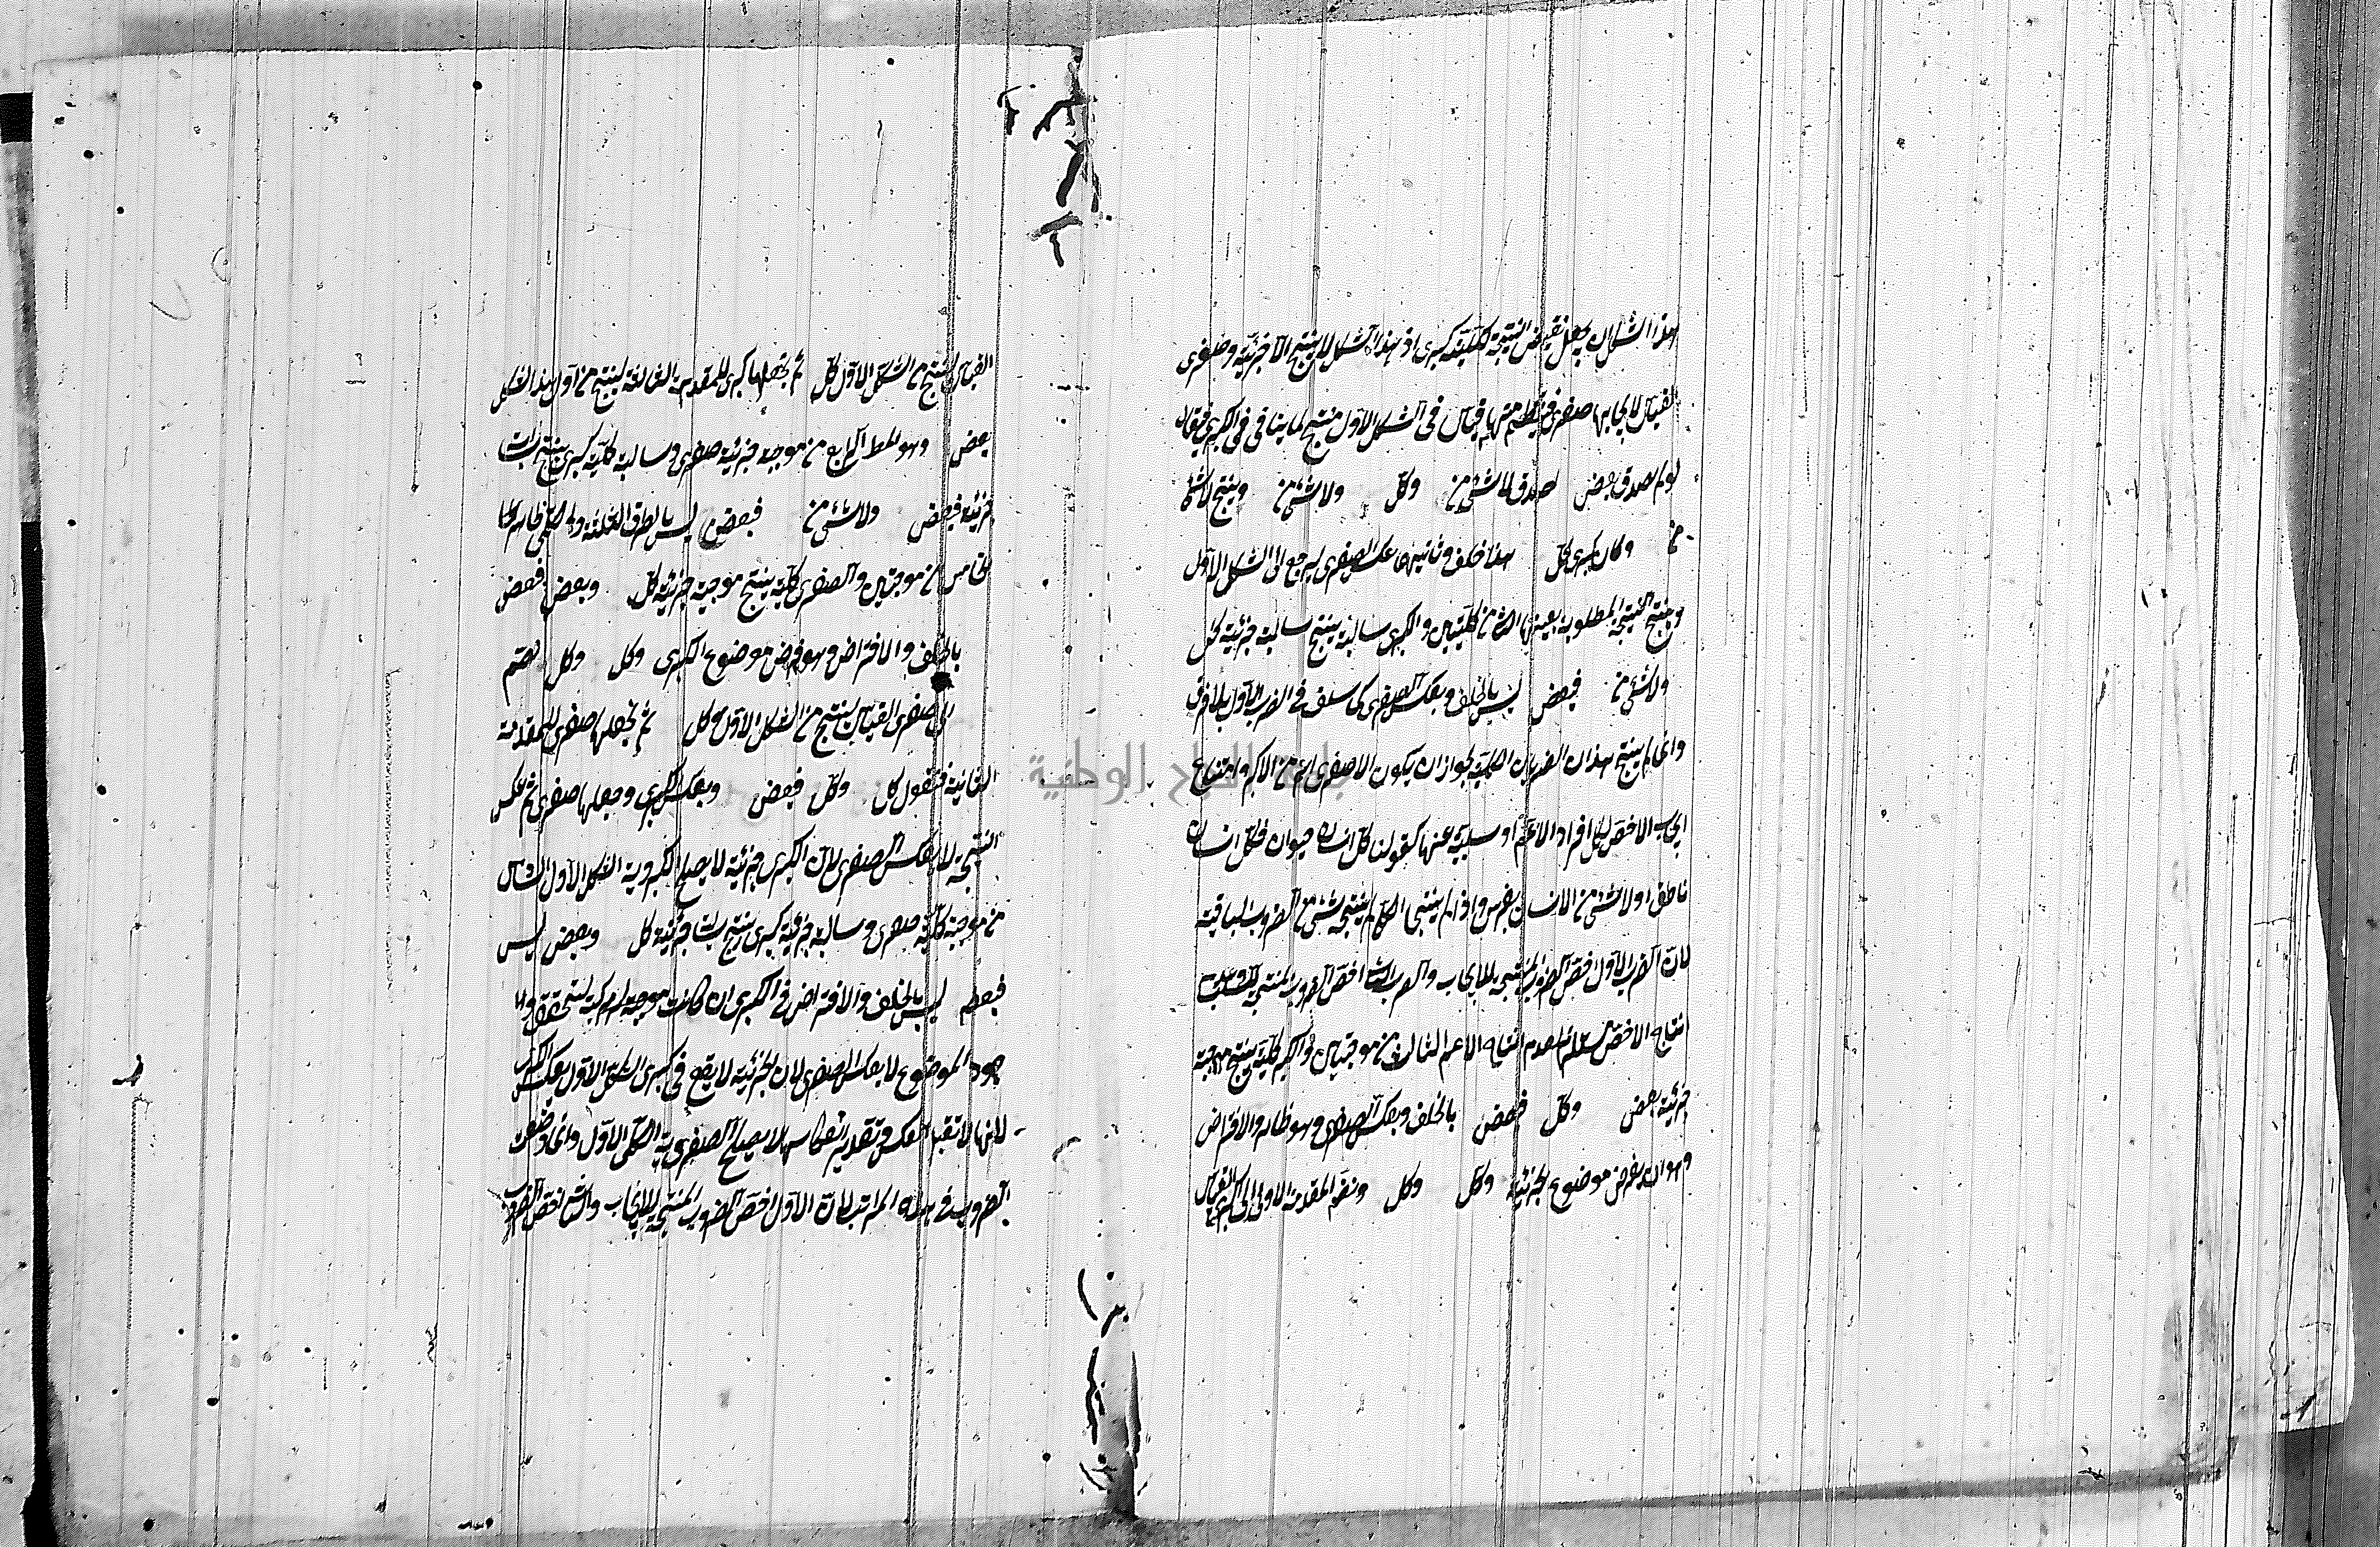 هذا الشكل ان يجعل نقيض النتيجة لكليته كبرى اذ هذا الشكل لا ينتج الا جزئية وصغرى
القياس لايجابها صغرى فينتظم منهما قياس في الشكل الاول منتج لما ينافى في الكبرى فيقال
لو لم يصدق بعض لصدق لا شئ من وكل ولا شئ من وينتج لا شئ
من وكان كبرى كل هذا خلف وثانيهما عكس الصغرى ليرجع الى الشكل الاول
وينتج النتيجة المطلوبة بعينها الثاني من كليتين والكبرى سالبة ينتج سالبة جزئية كل
ولا شئ من فبعض ليس بالخلف وبعكس الصغرى كما سلف في الضرب الاول بلا فرق
وانما لم ينتج هذان الضربان الكلية لجواز ان يكون الاصغر اعم من الاكبر وامتناع
ايجاب الاخص لكل افراد الاعم او سلبه عنها كقولنا كل انسان حيوان وكل انسان
ناطق او لا شئ من الانسان بفرس واذا لم ينتجا الكلى لم ينتجه شئ من الضروب الباقية
لان الضرب الاول اخص الضروب المنتجة للايجاب والضرب الثاني اخص الضروب المنتجة للسلب وعدم
انتاج الاخص مستلزم لعدم انتاج الاعم الثالث من موجبتين والكبرى كلية ينتج موجبة
جزئية بعض وكل فبعض بالخلف وبعكس الصغرى وهو ظاهر والافتراض
وهو ان يفرض موضوع الجزئية وكل وكل ونضم المقدمة الاولى الى كبرى القياس
القياس لينتج من الشكل الاول كل ثم نجعلها كبرى للمقدمة الثانية لينتج من اول هذا الشكل
بعض وهو المط الرابع من موجبة جزئية صغرى وسالبة كلية كبرى ينتج سالبة
جزئية فبعض ولا شئ من فبعض ليس بالطرق الثلثة والكل ظاهر
الخامس من موجبتين والصغرى كلية ينتج موجبة جزئية كل وبعض فبعض
بالخلف والافتراض وهو فرض موضوع الكبرى وكل وكل نضم
الى صغرى القياس لينتج من الشكل الاول كل ثم نجعلها صغرى للمقدمة
الثانية فنقول كل وكل فبعض وبعكس الكبرى وجعلها صغرى ثم عكس
النتيجة لا بعكس الصغرى لان الكبرى جزئية لا يصلح لكبروية الشكل الاول السادس
من موجبة كلية صغرى وسالبة جزئية كبرى ينتج سالبة جزئية كل وبعض ليس
فبعض ليس بالخلف والافتراض في الكبرى ان كانت موجبة مركبة ليتحقق
وجود الموضوع لا بعكس الصغرى لان الجزئية لا يقع في كبرى الشكل الاول ولا بعكس الكبرى
لانها لا تقبل العكس وبتقدير انعكاسها لا يصلح لصغروية الشكل الاول وانما وضعت
الضروب في هذه المراتب لان الاول اخص الضروب المنتجة للايجاب والثاني اخص الضروب